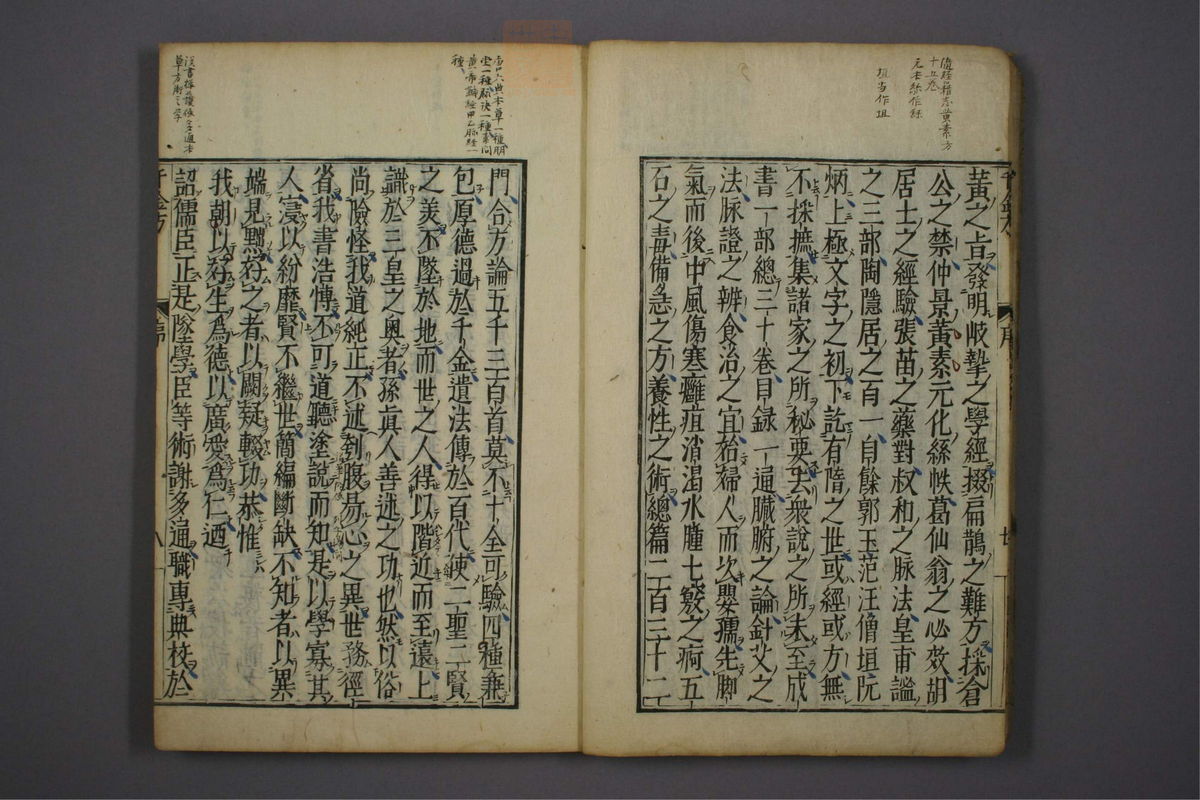 傷寒雜志黃素方
十五卷
元本絲作綠
垣當作坦
黃之旨發明岐摯之學經掇扁鵲之難方採倉
公之禁仲景黃素元化絲帙葛仙翁之必效胡
居士之經驗張苗之藥對叔和之脉法皇甫謐
之三部陶隱居之百一自餘郭玉范汪僧垣阮
炳上極文字之初下訖有隋之世或經或方無
不採摭集諸家之所秘要去衆說之所未至成
書一部總三十卷目録一通臟腑之論針艾之
法脉證之辨食治之宜始婦人而次嬰孺先脚
氣而後中風傷寒癰疽消渴水腫七竅之痾五
石之毒備急之方養性之術總篇二百三十二
門合方論五千三百首莫不十全可驗四種兼
包厚德過於千金遺法傳於百代使二聖二賢
之美不墜於地而世之人得以階近而至遠上
識於三皇之奧者孫真人善述之功也然以俗
尚險怪我道純正不述刳腹易心之異世務徑
省我書浩愽不可道聽塗說而知是以學寡其
人寖以紛靡賢不繼世簡編斷缺不知者以異
端見黜好之者以闕疑輟功恭惟
我朝以好生爲德以廣愛爲仁迺
詔儒臣正是墜學臣等術謝多通職專典校於
千金方
序
八